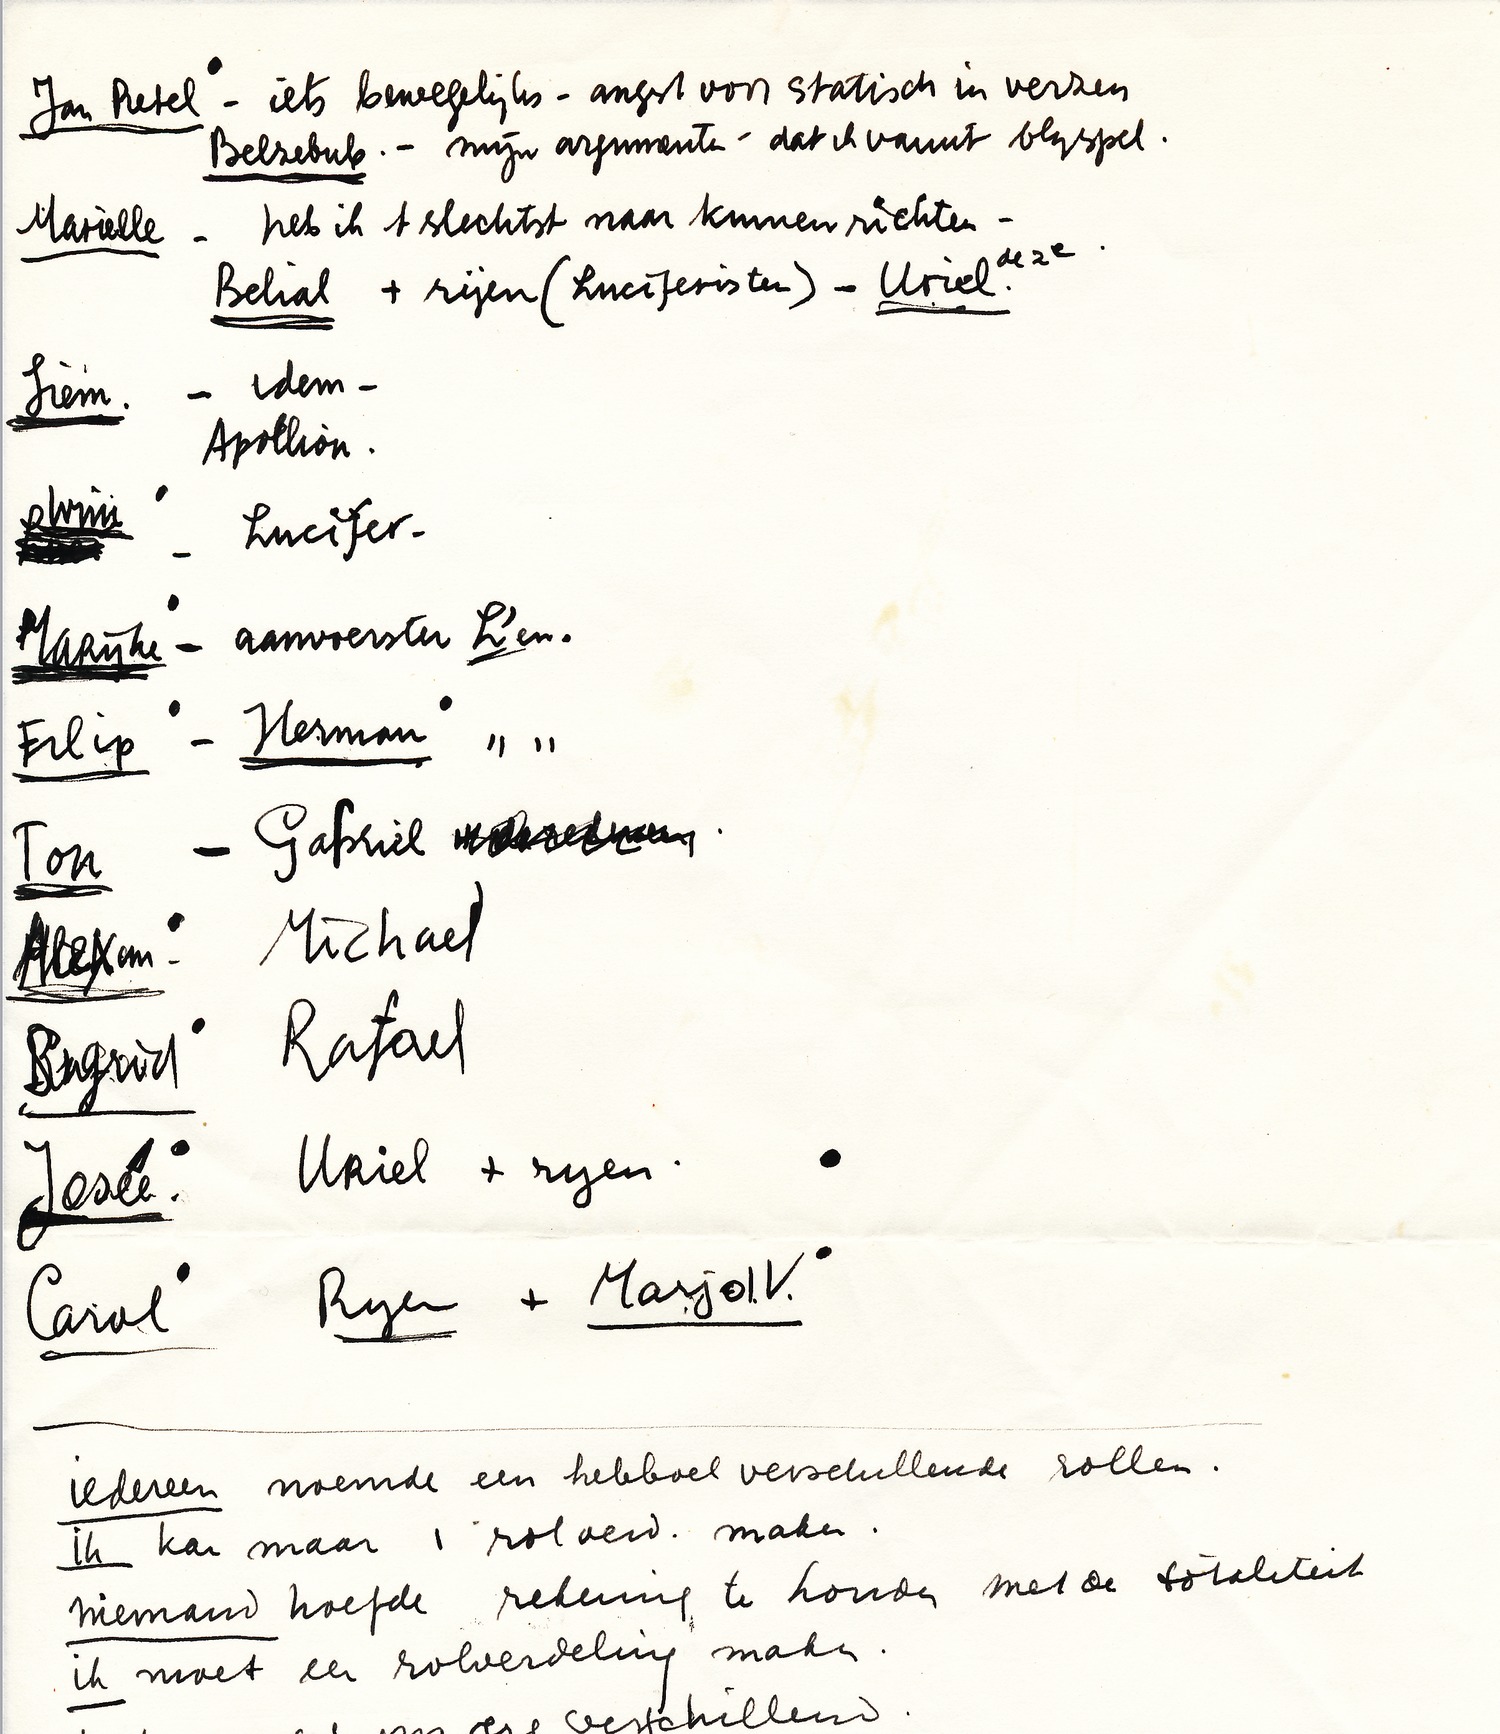 Jan Retel - iets bewegelijks - angst voor statisch in verzen
Belzebub. - mijn argumenten - dat ik vanuit blyspel.
Marielle - heb ik 't slechtst naar kunnen richten -
Belial + rijen (Luciferisten) - Uriel. de 2e
Siem. - idem -
Apollion.
- Lucifer -
Marijke - aanvoerster L'en.
Filip - Herman " "
Ton - Gabriel
Alexan. - Michael
Ingrid Rafael
Josée. Uriel + ryen.
Carol Ryen + Marjol.V.
iedereen noemde een heleboel verschillende rollen.
ik kan maar 1 rolverd. maken.
niemand hoefde rekening te houden met de totaliteit
ik moet een rolverdeling maken.
verschillend.